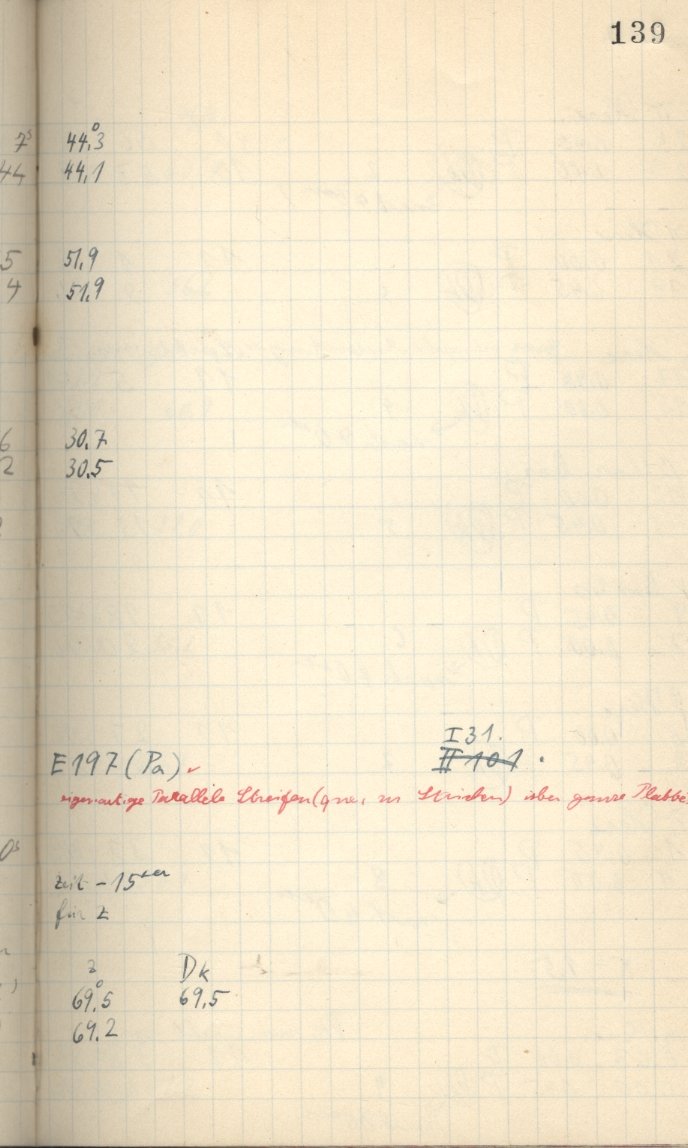 139
7ˢ 44.°3
44 44,1
5 51,9
4 51,9
6 30.7
2 30.5
I 31.
E 197 (Pa) II 101 .
eigenartige Parallele Streifen (quer zu Strichen) über ganze Platte
0ˢ
Zeit – 15
für z
z Dk
69.°5 69,5
69.2